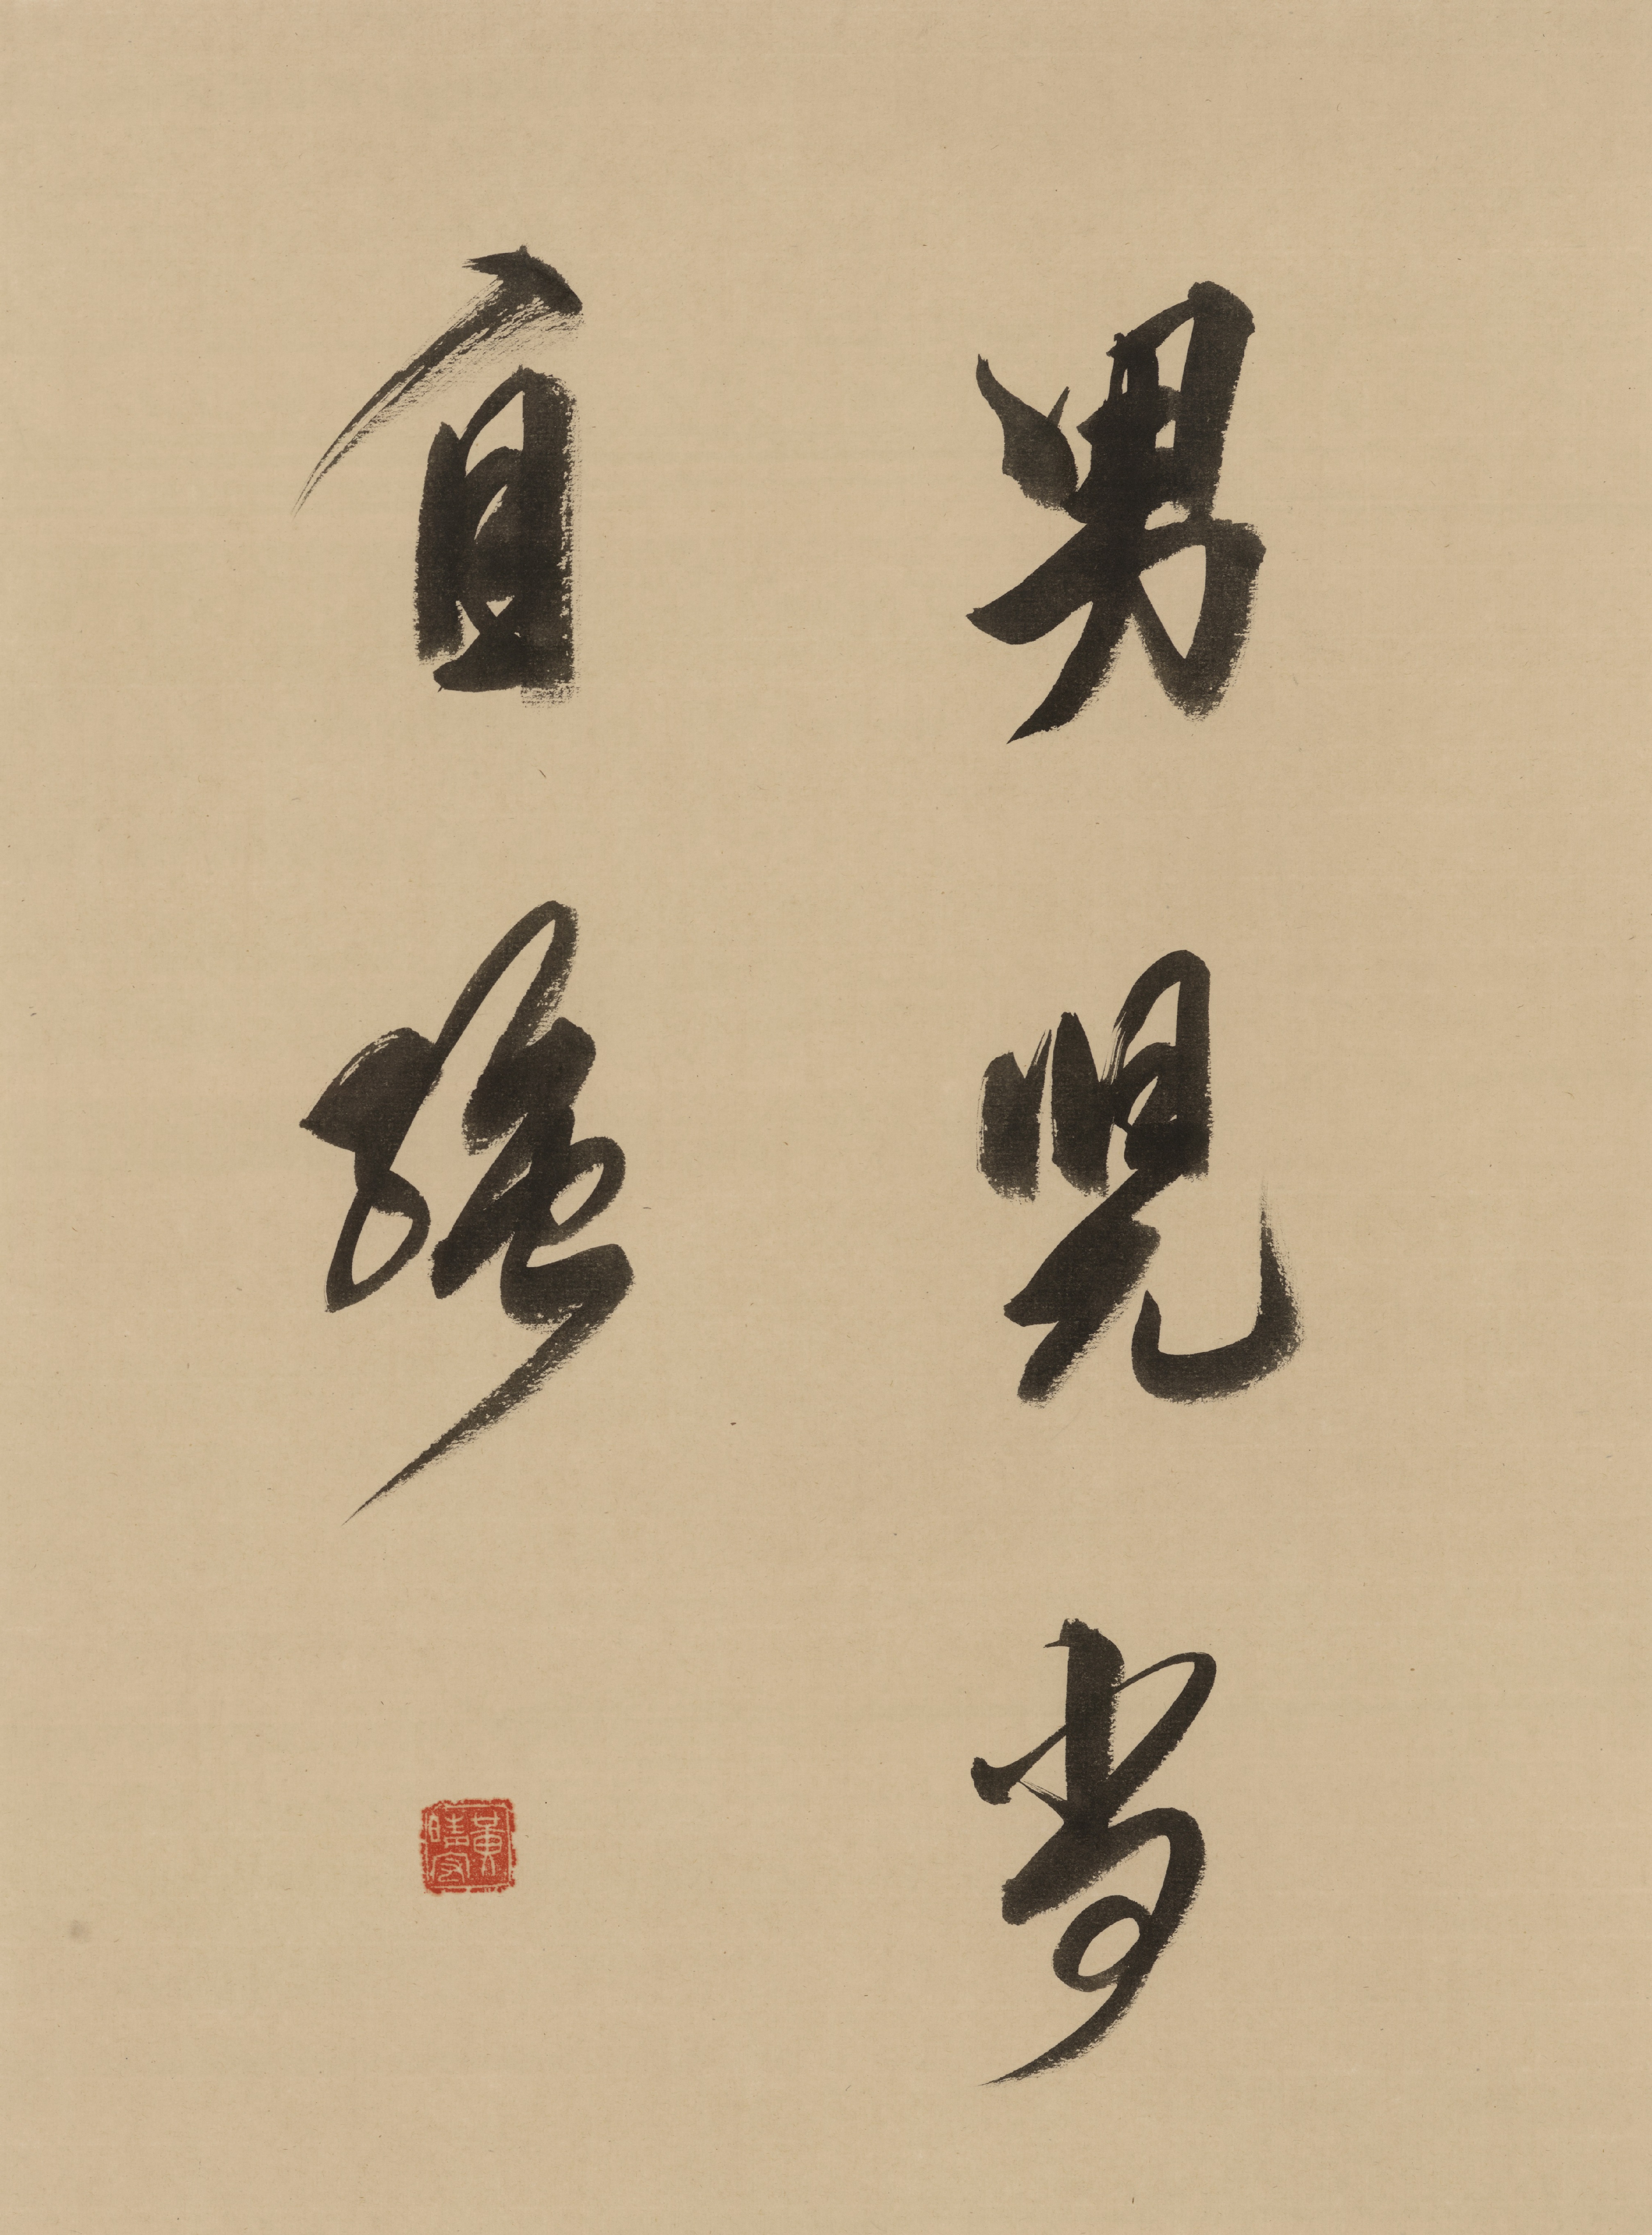 男兒當
自強